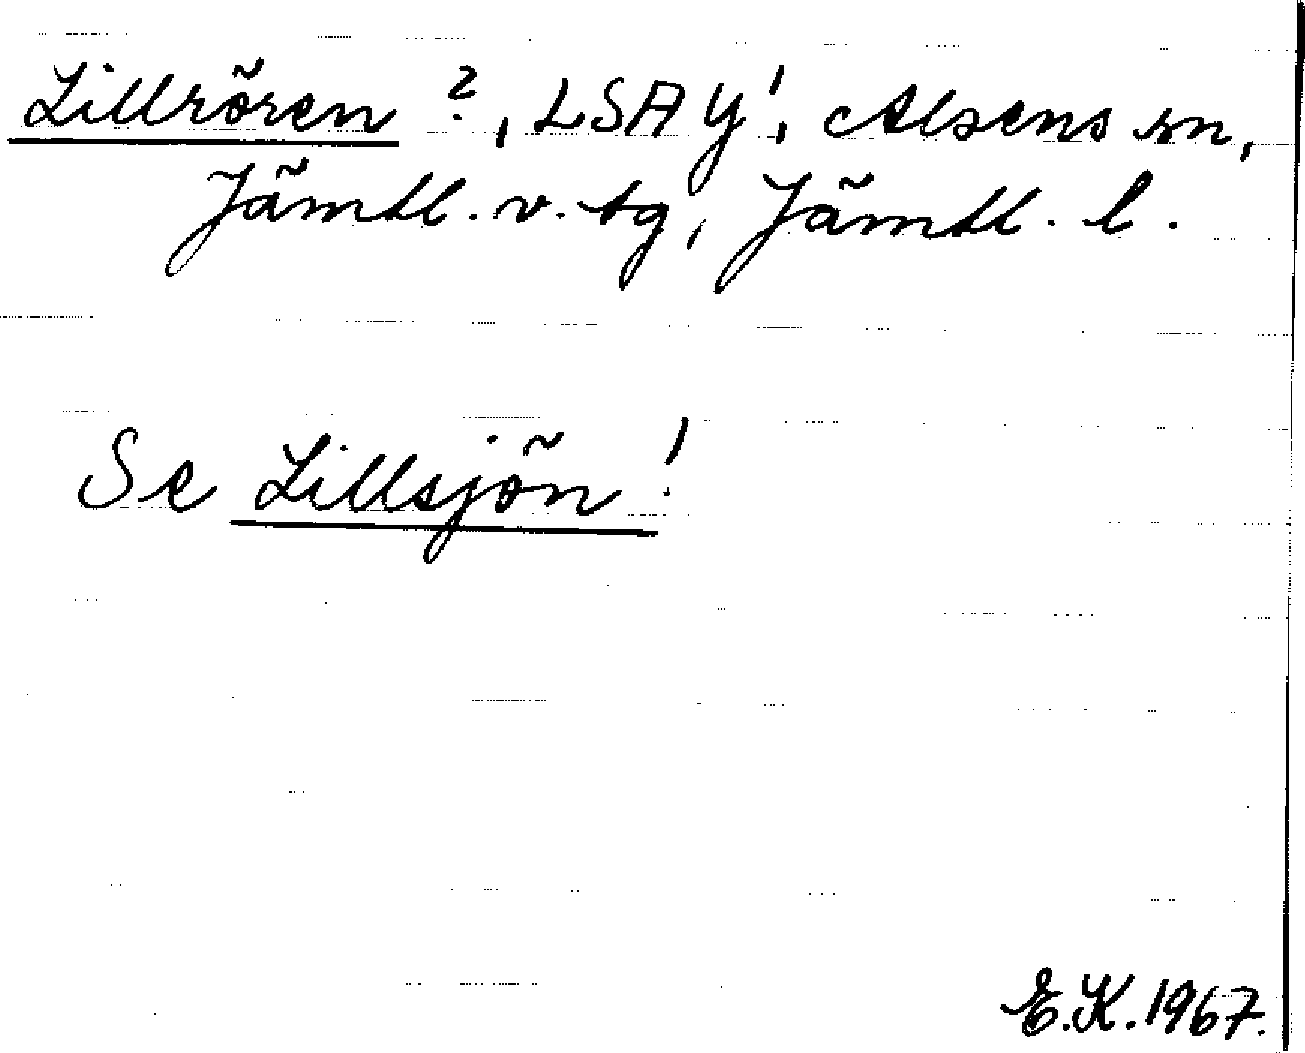 Lillrören ?, LSA Y!, Alsens sn,
Jämtl. v. tg, Jämtl. l.
Se Lillsjön!
E.K. 1967.